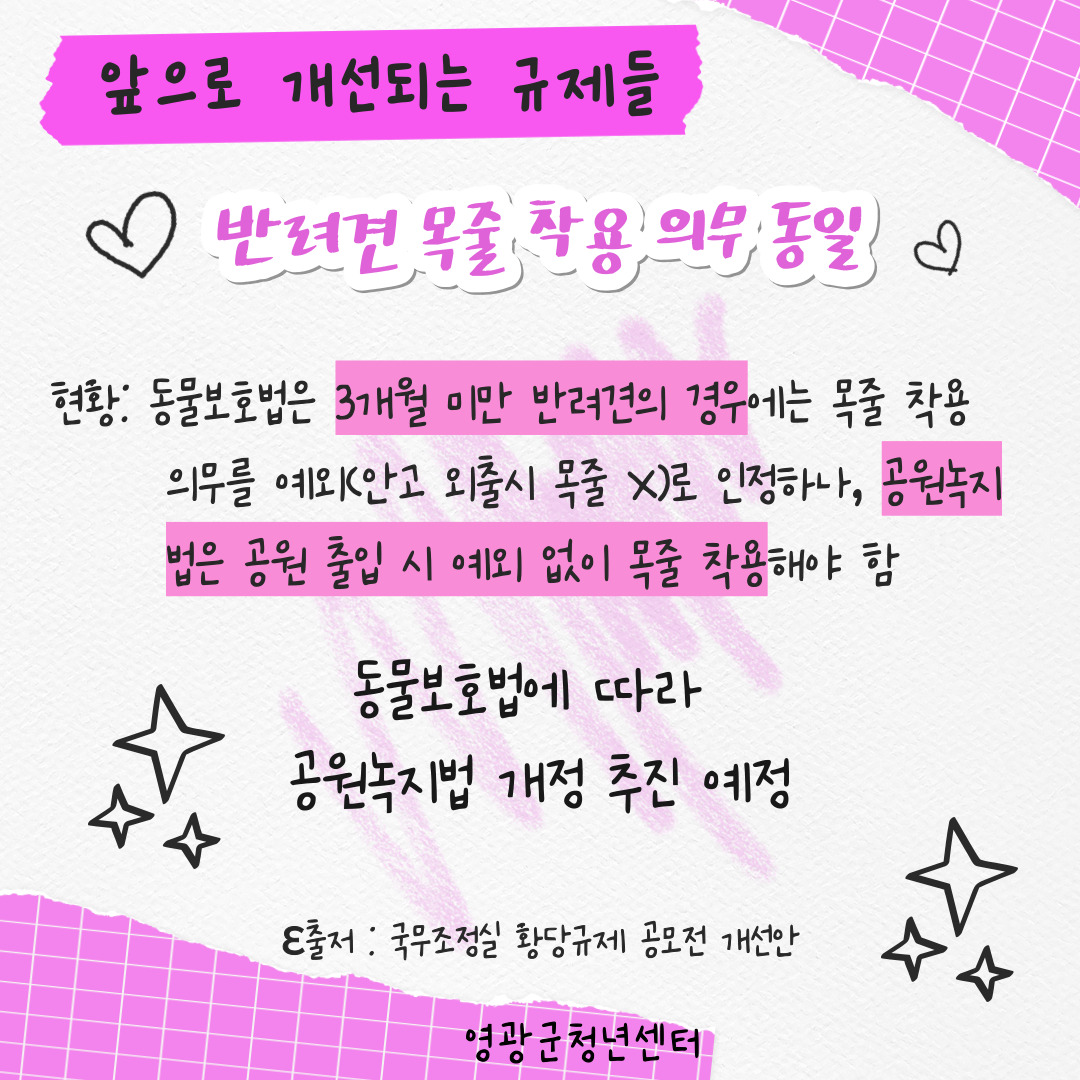 앞으로 개선되는 규제들
반려견 목줄 착용 의무 동일
현황: 동물보호법은 3개월 미만 반려견의 경우에는 목줄 착용
의무를 예외(안고 외출시 목줄 X)로 인정하나, 공원녹지
법은 공원 출입 시 예외 없이 목줄 착용해야 함
동물보호법에 따라
공원녹지법 개정 추진 예정
ε출저 : 국무조정실 황당규제 공모전 개선안
영광군청년센터